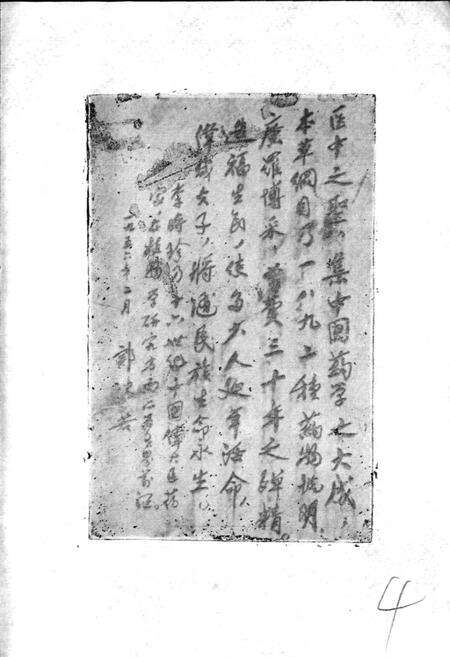 医中之聖，集中國药学之大成，
本草綱目乃一八九二種药物说明
廣羅博采，曾費三十年之殫精
造福生民，使多少人延年活命
偉哉夫子，将随民族生命永生。
李時珍乃十六世纪中国偉大医药
学家在植物学研究方面亦为世界前驱。
一九五六年二月 郭沫若
4